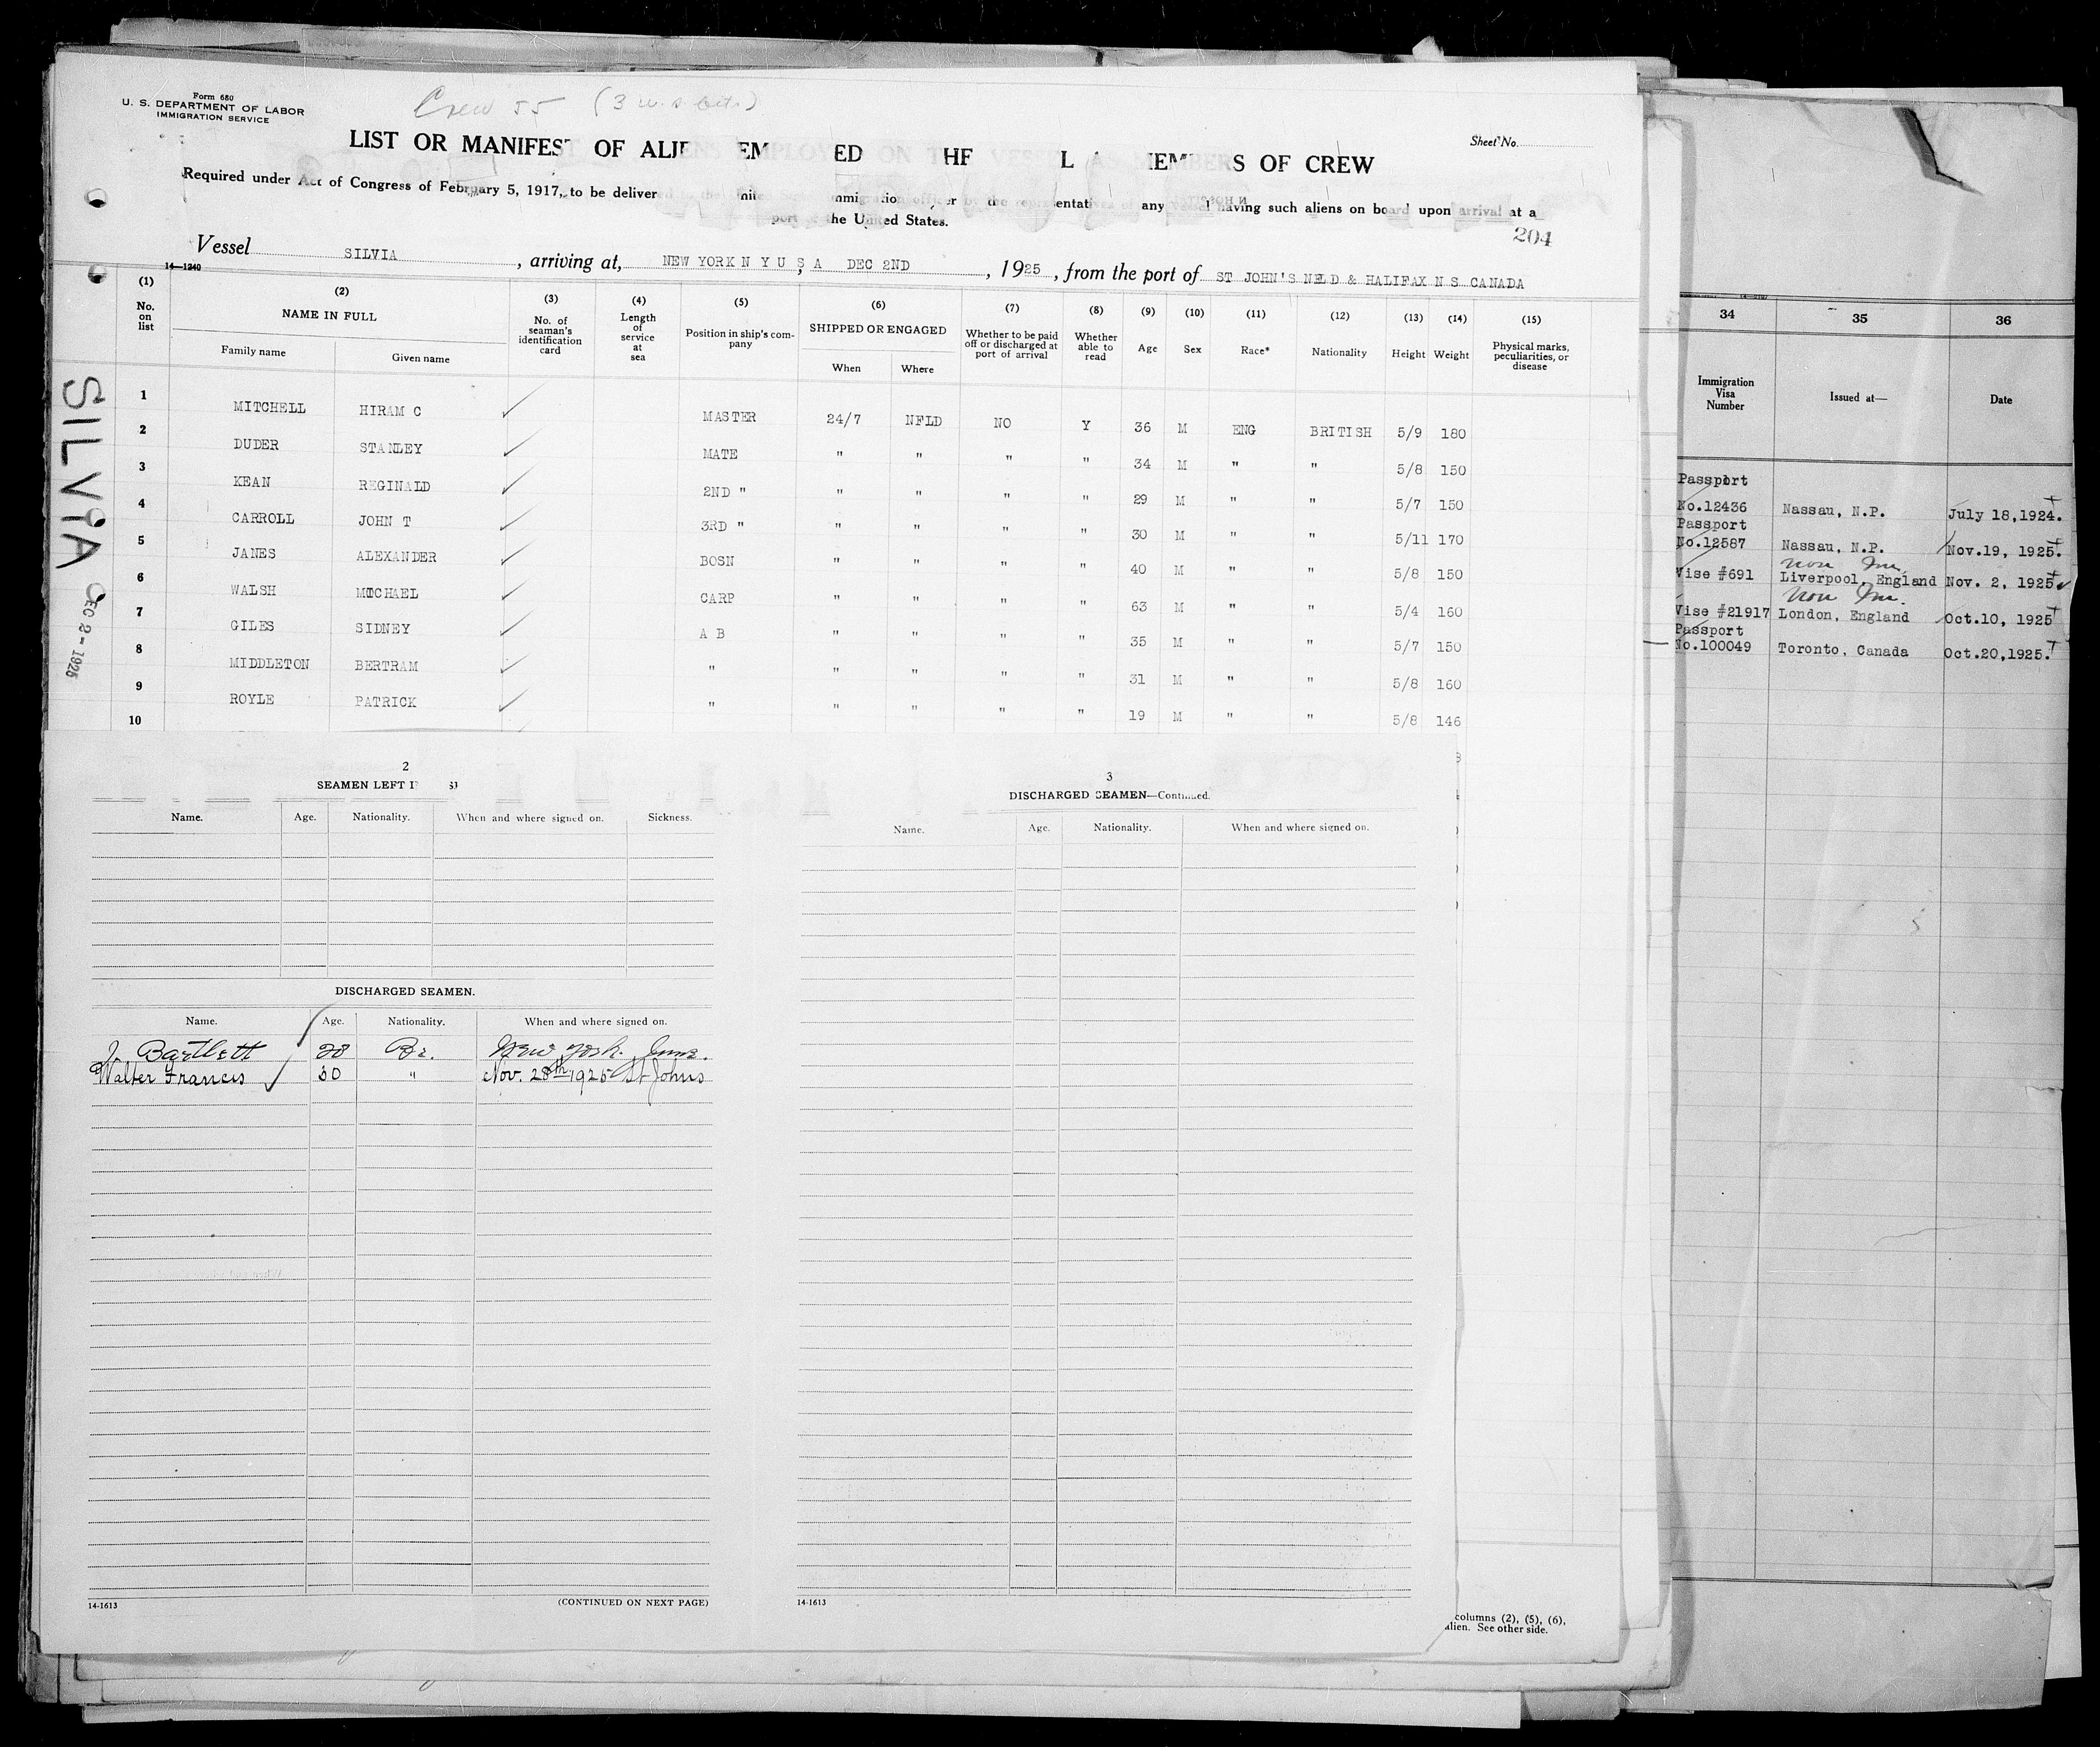 Form 680
U. S. DEPARTMENT OF LABOR
IMMIGRATION SERVICE
Crew 55 (3
LIST OR MANIFEST OF ALIENS EMPLOYED ON THE VESSEL AS MEMBERS OF CREW
Sheet No.
Required under Act of Congress of February 5, 1917, to be delivered to the United States immigration officer by the representatives of any vessel having such aliens on board upon arrival at a
port of the United States.
204
Vessel SILVIA, arriving at, NEW YORK N Y U S A DEC 2ND, 1925, from the port of ST JOHN'S NFLD & HALIFAX N S CANADA
14—1240
(1) (2) (3) (4) (5) (6) (7) (8) (9) (10) (11) (12) (13) (14) (15)
No. on list
NAME IN FULL
Family name Given name
No. of seaman's identification card
Length of service at sea
Position in ship's company
SHIPPED OR ENGAGED
When Where
Whether to be paid off or discharged at port of arrival
Whether able to read
Age Sex Race* Nationality Height Weight
Physical marks, peculiarities, or disease
1 MITCHELL HIRAM C MASTER 24/7 NFLD NO Y 36 M ENG BRITISH 5/9 180
2 DUDER STANLEY MATE " " " " 34 M " " 5/8 150
3 KEAN REGINALD 2ND " " " " " 29 M " " 5/7 150
4 CARROLL JOHN T 3RD " " " " " 30 M " " 5/11 170
5 JANES ALEXANDER BOSN " " " " 40 M " " 5/8 150
6 WALSH MICHAEL CARP " " " " 63 M " " 5/4 160
7 GILES SIDNEY A B " " " " 35 M " " 5/7 150
8 MIDDLETON BERTRAM " " " " " 31 M " " 5/8 160
9 ROYLE PATRICK " " " " " 19 M " " 5/8 146
10
SILVIA
DEC 2-1925
2
SEAMEN LEFT I
Name. Age. Nationality. When and where signed on. Sickness.
DISCHARGED SEAMEN.
Name. Age. Nationality. When and where signed on.
J. Bartlett 28 Br. New York. June.
Walter Francis 30 " Nov. 28th 1925 St Johns
14-1613 (CONTINUED ON NEXT PAGE)
3
DISCHARGED SEAMEN—Continued.
Name. Age. Nationality. When and where signed on.
14-1613
columns (2), (5), (6),
alien. See other side.
34 35 36
Immigration Visa Number
Issued at—
Date
Passport
No.12436 Nassau, N.P. July 18,1924.
Passport
No.12587 Nassau, N.P. Nov.19, 1925.
Non Im.
Vise #691 Liverpool, England Nov. 2, 1925
Non Im.
Vise #21917 London, England Oct.10, 1925
Passport
No.100049 Toronto, Canada Oct.20,1925.